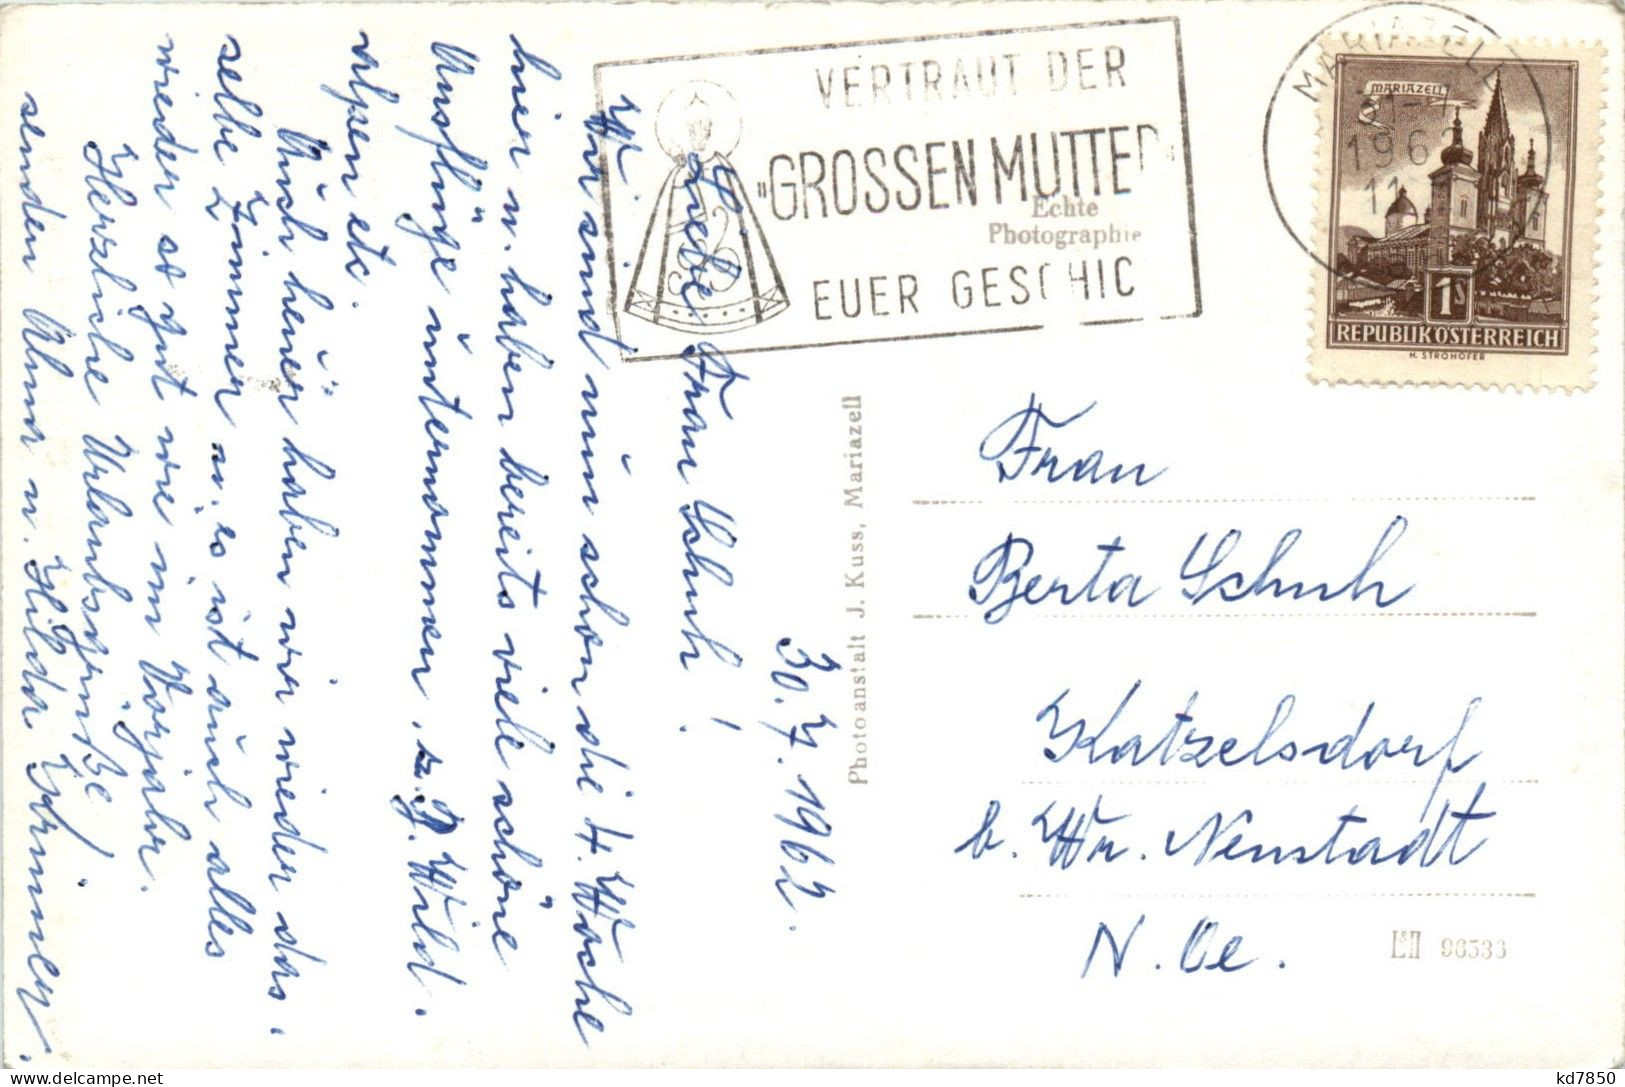 VERTRAUT DER
"GROSSEN MUTTER
EUER GESCHIC
Echte
Photographie
MARIAZELL
196
11
MARIAZELL
1S
REPUBLIK ÖSTERREICH
H. STROHOFER
30. 7. 1962.
Liebe Frau Schuh!
Wir sind nun schon die 4. Woche
hier u. haben bereits viele schöne
Ausflüge unternommen, z. B. Wild.
alpen etc.
Auch heuer haben wir wieder das.
selbe Zimmer u. es ist auch alles
wieder so gut wie im Vorjahr.
Herzliche Urlaubsgrüße
senden Alma u. Hilda
Photoanstalt J. Kuss, Mariazell
Frau
Berta Schuh
Katzelsdorf
b. Wr. Neustadt
N. Oe.
96536
kd7850